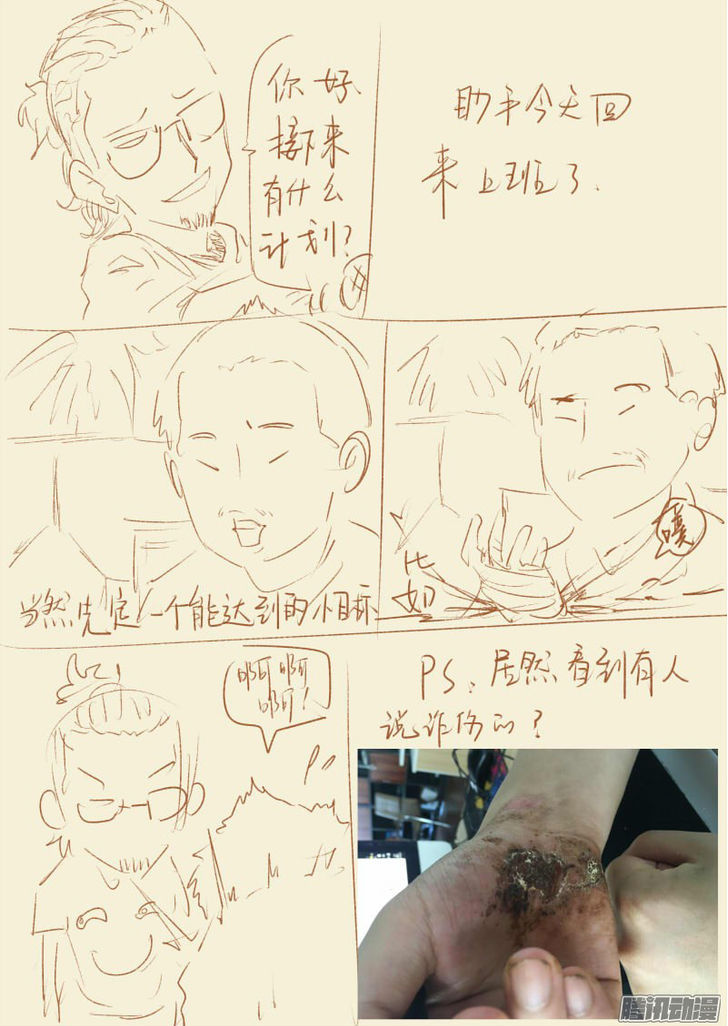 你好
接下来
有什么
计划?
助手今天回
来上班了.
当然先定一个能达到的小目标
比
如
噗
啊啊
啊?
PS:居然看到有人
说诈伤的?
腾讯动漫